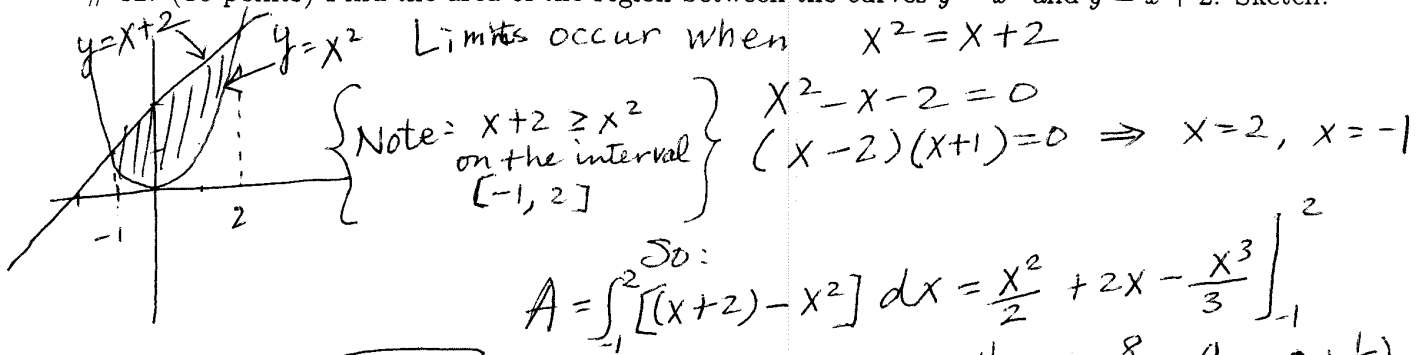 y=x+2 y=x² Limits occur when x²=x+2
x²-x-2=0
{Note: x+2 ≥ x² on the interval [-1, 2]} (x-2)(x+1)=0 ⇒ x=2, x=-1
-1 2
So:
A = ∫₋₁² [(x+2)-x²] dx = x²/2 + 2x - x³/3 ]₋₁²